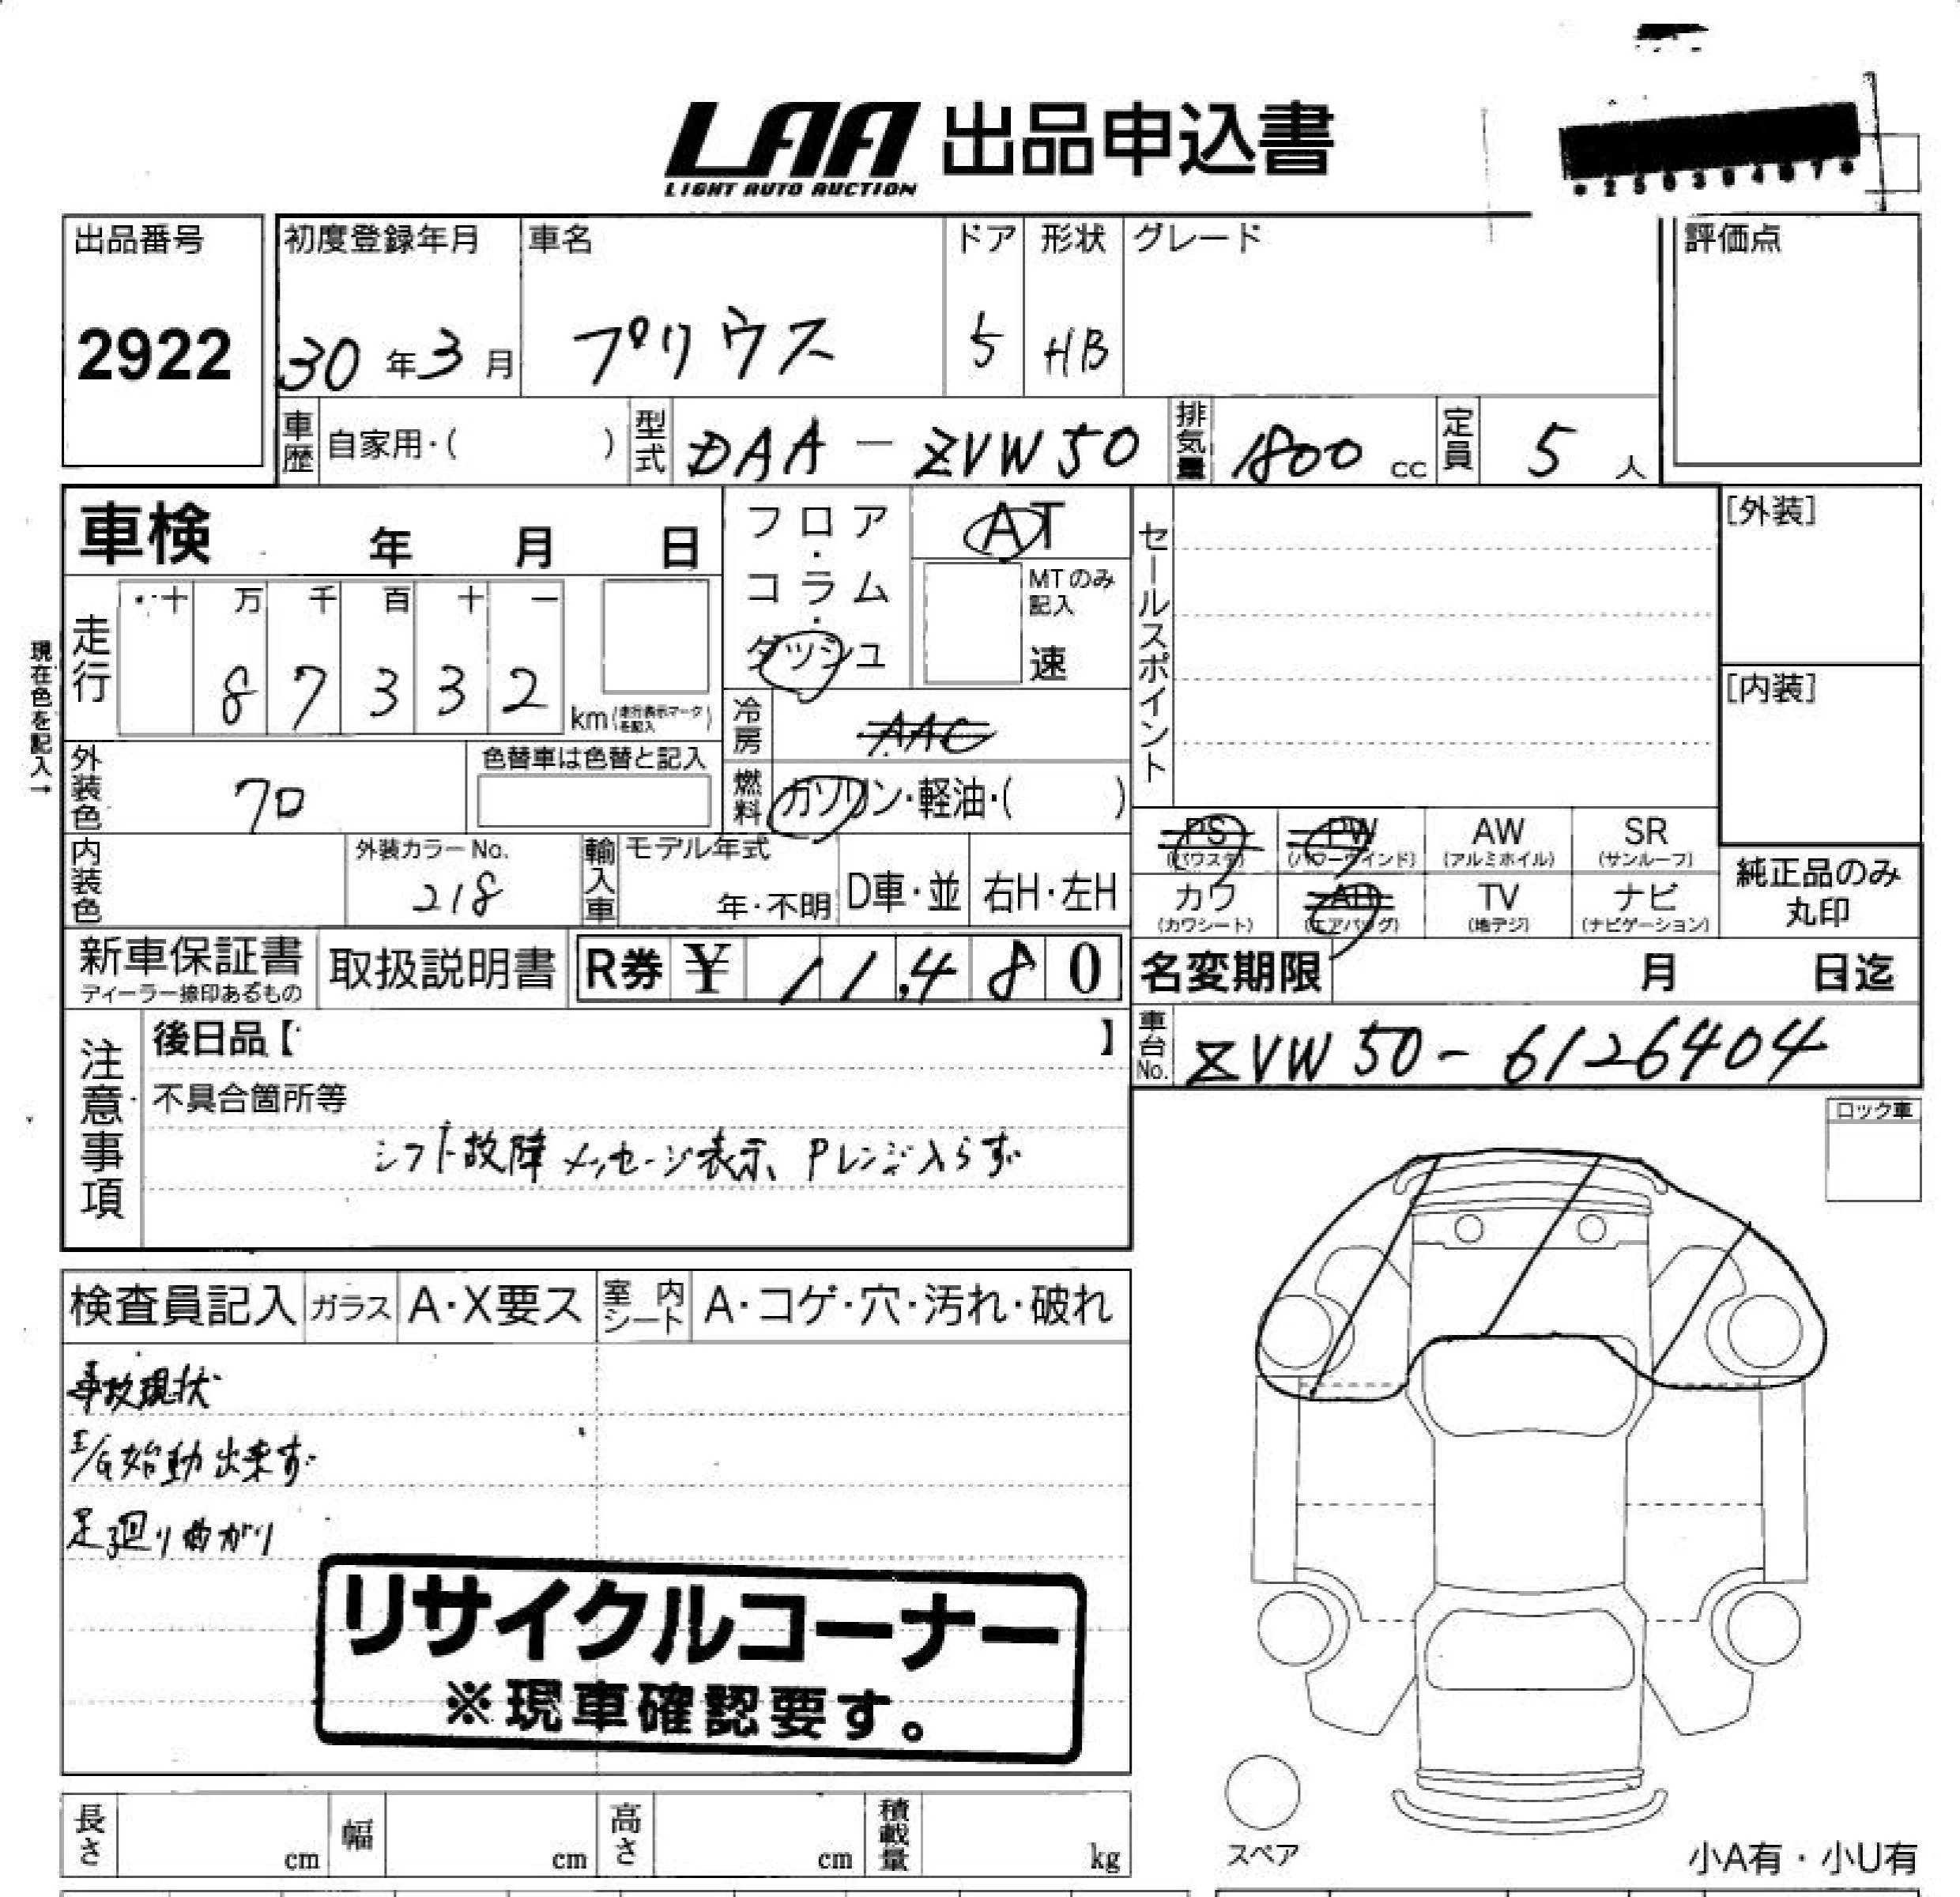 LAA 出品申込書
LIGHT AUTO AUCTION
出品番号
2922
初度登録年月
30年3月
車名
プリウス
ドア
5
形状
HB
グレード
評価点
車歴 自家用・( )
型式 DAA-ZVW50
排気量 1800 cc
定員 5 人
車検 年 月 日
フロア・コラム・ダッシュ
AT
MTのみ記入
速
セールスポイント
[外装]
[内装]
現在色を記入→
走行
十 万 千 百 十 一
8 7 3 3 2
km (走行表示マークを記入)
冷房 AAC
外装色 クロ
色替車は色替と記入
燃料 ガソリン・軽油・( )
内装色
外装カラーNo.
218
輸入車 モデル年式
年・不明 D車・並 右H・左H
PS (パワステ)
PW (パワーウインド)
AW (アルミホイル)
SR (サンルーフ)
カワ (カワシート)
AB (エアバッグ)
TV (地デジ)
ナビ (ナビゲーション)
純正品のみ
丸印
新車保証書
ディーラー捺印あるもの
取扱説明書
R券 ¥ 11,480
名変期限 月 日迄
注意事項
後日品【 】
不具合箇所等
シフト故障メッセージ表示、Pレンジ入らず
車台No. ZVW50-6126404
ロック車
検査員記入 ガラス A・X要ス 室内シート A・コゲ・穴・汚れ・破れ
事故現状
E/G始動出来ず
足廻り曲がり
リサイクルコーナー
※現車確認要す。
スペア
長さ cm 幅 cm 高さ cm 積載量 kg
小A有・小U有